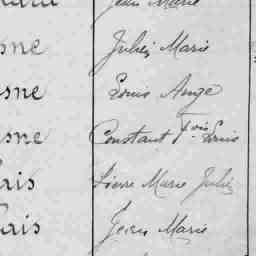 Jean Marie
sne Julien Marie
sne Louis Ange
sne Constant Fois Louis
ais Pierre Marie Julien
ais Jean Marie